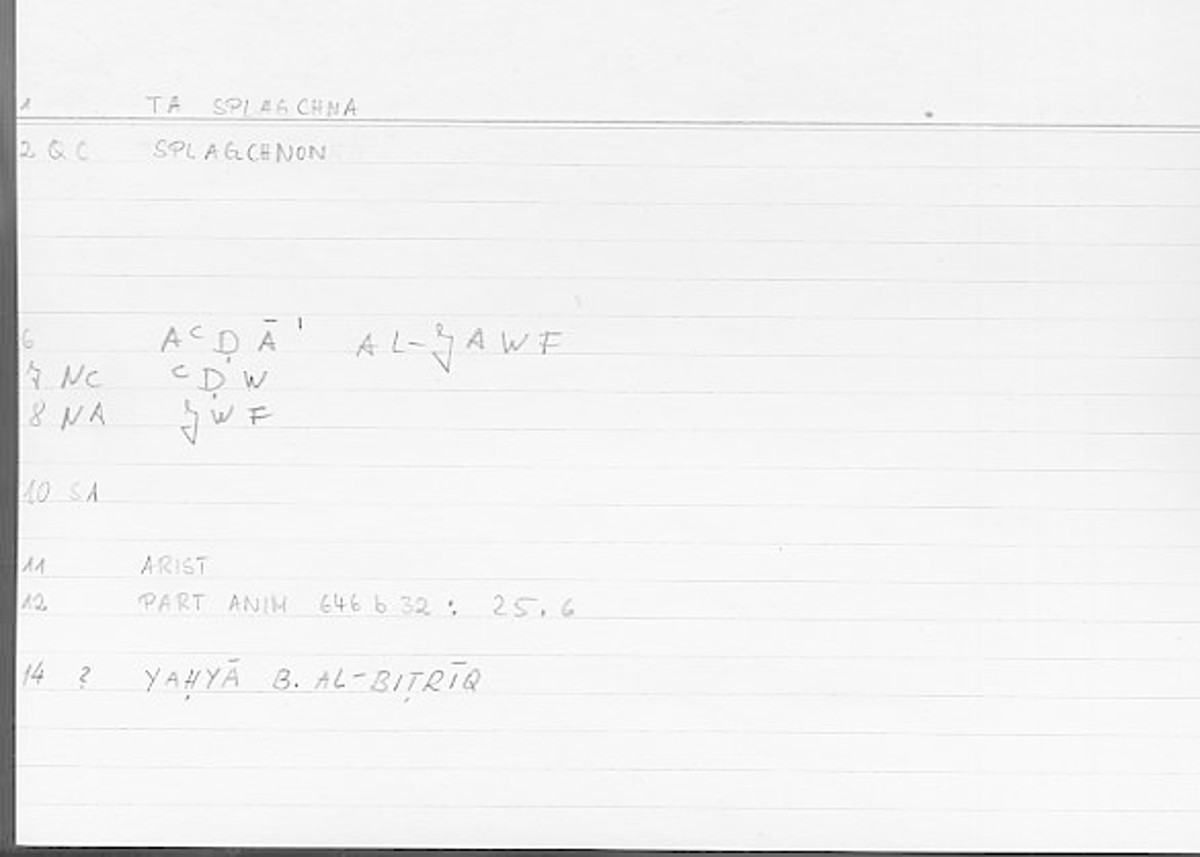 1 TA SPLAGCHNA
2 QC SPLAGCHNON
6 AᶜḌĀʾ AL-ǦAWF
7 NC ᶜḌW
8 NA ǦWF
10 SA
11 ARIST
12 PART ANIM 646 b 32 : 25.6
14 ? YAḤYĀ B. AL-BIṬRĪQ